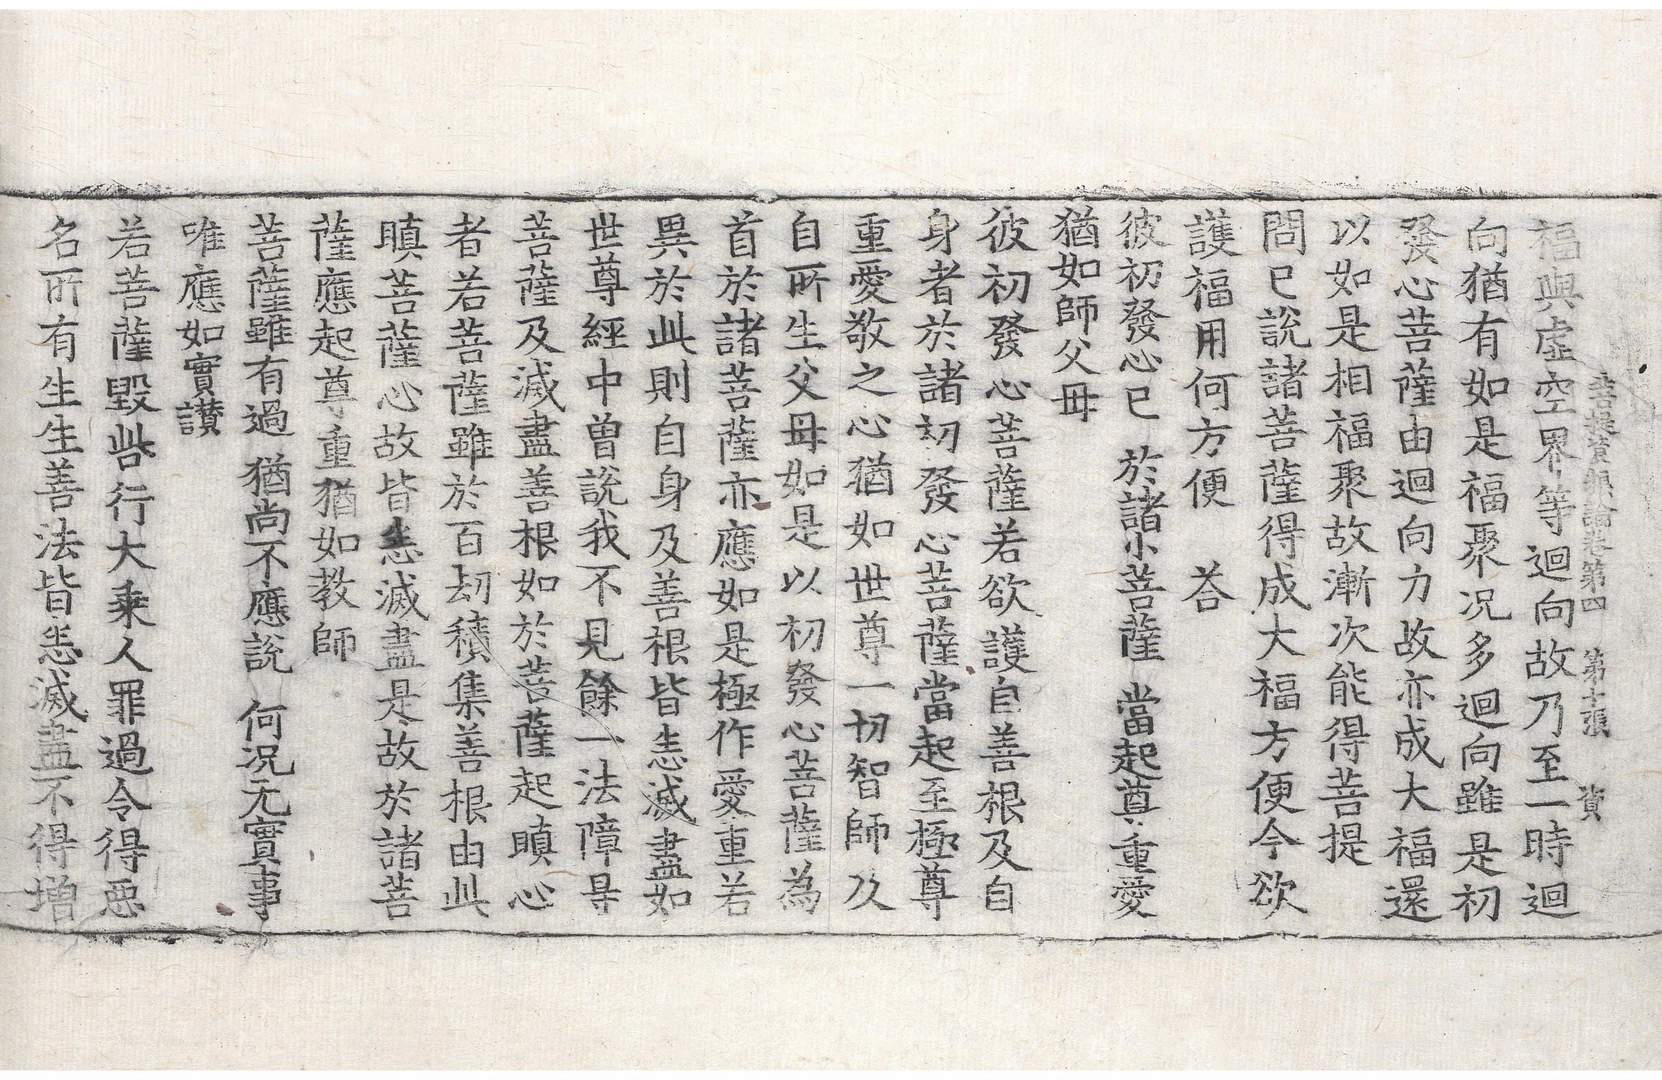 菩提資糧論卷第四 第十張 資
福與虛空界等迴向故乃至一時迴
向猶有如是福聚况多迴向雖是初
發心菩薩由迴向力故亦成大福還
以如是相福聚故漸次能得菩提
問已說諸菩薩得成大福方便今欲
護福用何方便 荅
彼初發心已 於諸小菩薩 當起尊重愛
猶如師父母
彼初發心菩薩若欲護自善根及自
身者於諸初發心菩薩當起至極尊
重愛敬之心猶如世尊一切智師及
自所生父母如是以初發心菩薩為
首於諸菩薩亦應如是極作愛重若
異於此則自身及善根皆悉滅盡如
世尊經中曾說我不見餘一法障㝵
菩薩及滅盡善根如於菩薩起瞋心
者若菩薩雖於百劫積集善根由此
瞋菩薩心故皆悉滅盡是故於諸菩
薩應起尊重猶如教師
菩薩雖有過 猶尚不應說 何况无實事
唯應如實讃
若菩薩毀呰行大乘人罪過令得惡
名所有生生善法皆悉滅盡不得增